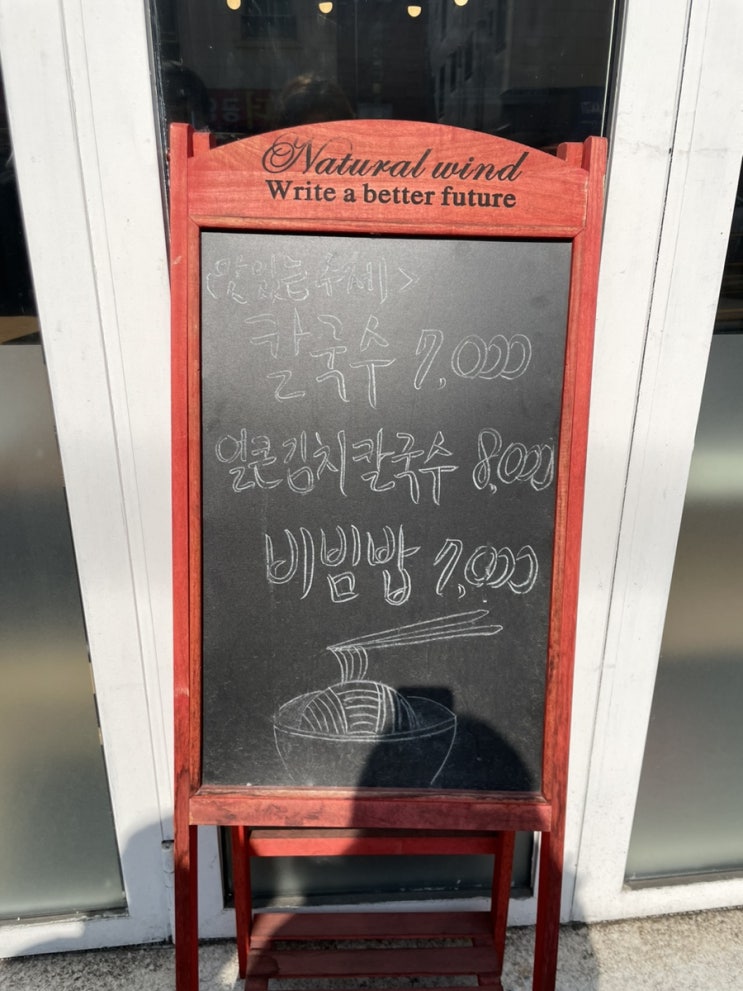 Natural wind
Write a better future
맛있는 수제>
칼국수 7,000
얼큰김치칼국수 8,000
비빔밥 7,000